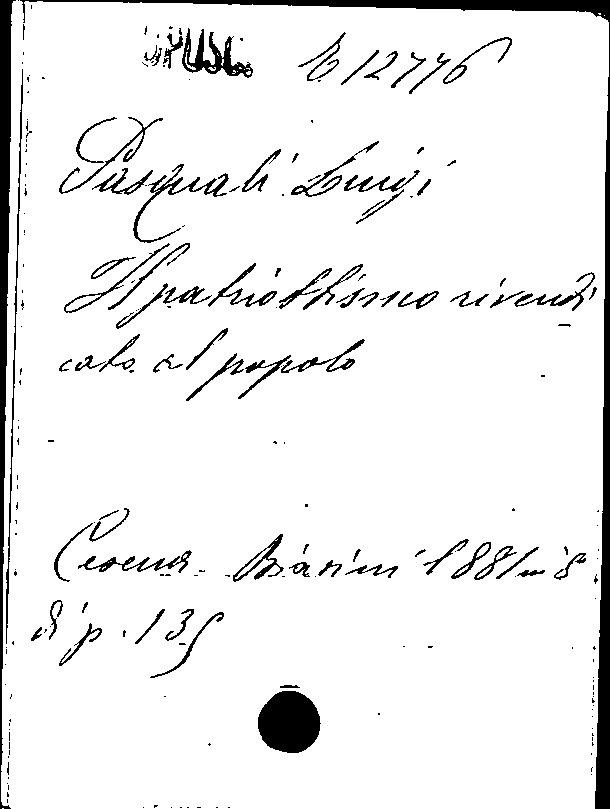 OPUSC.
E 12776
Pasquali Luigi
Il patriottismo rivendi
cato al popolo
Cesena. Biasini 1881 in 8
di p. 135